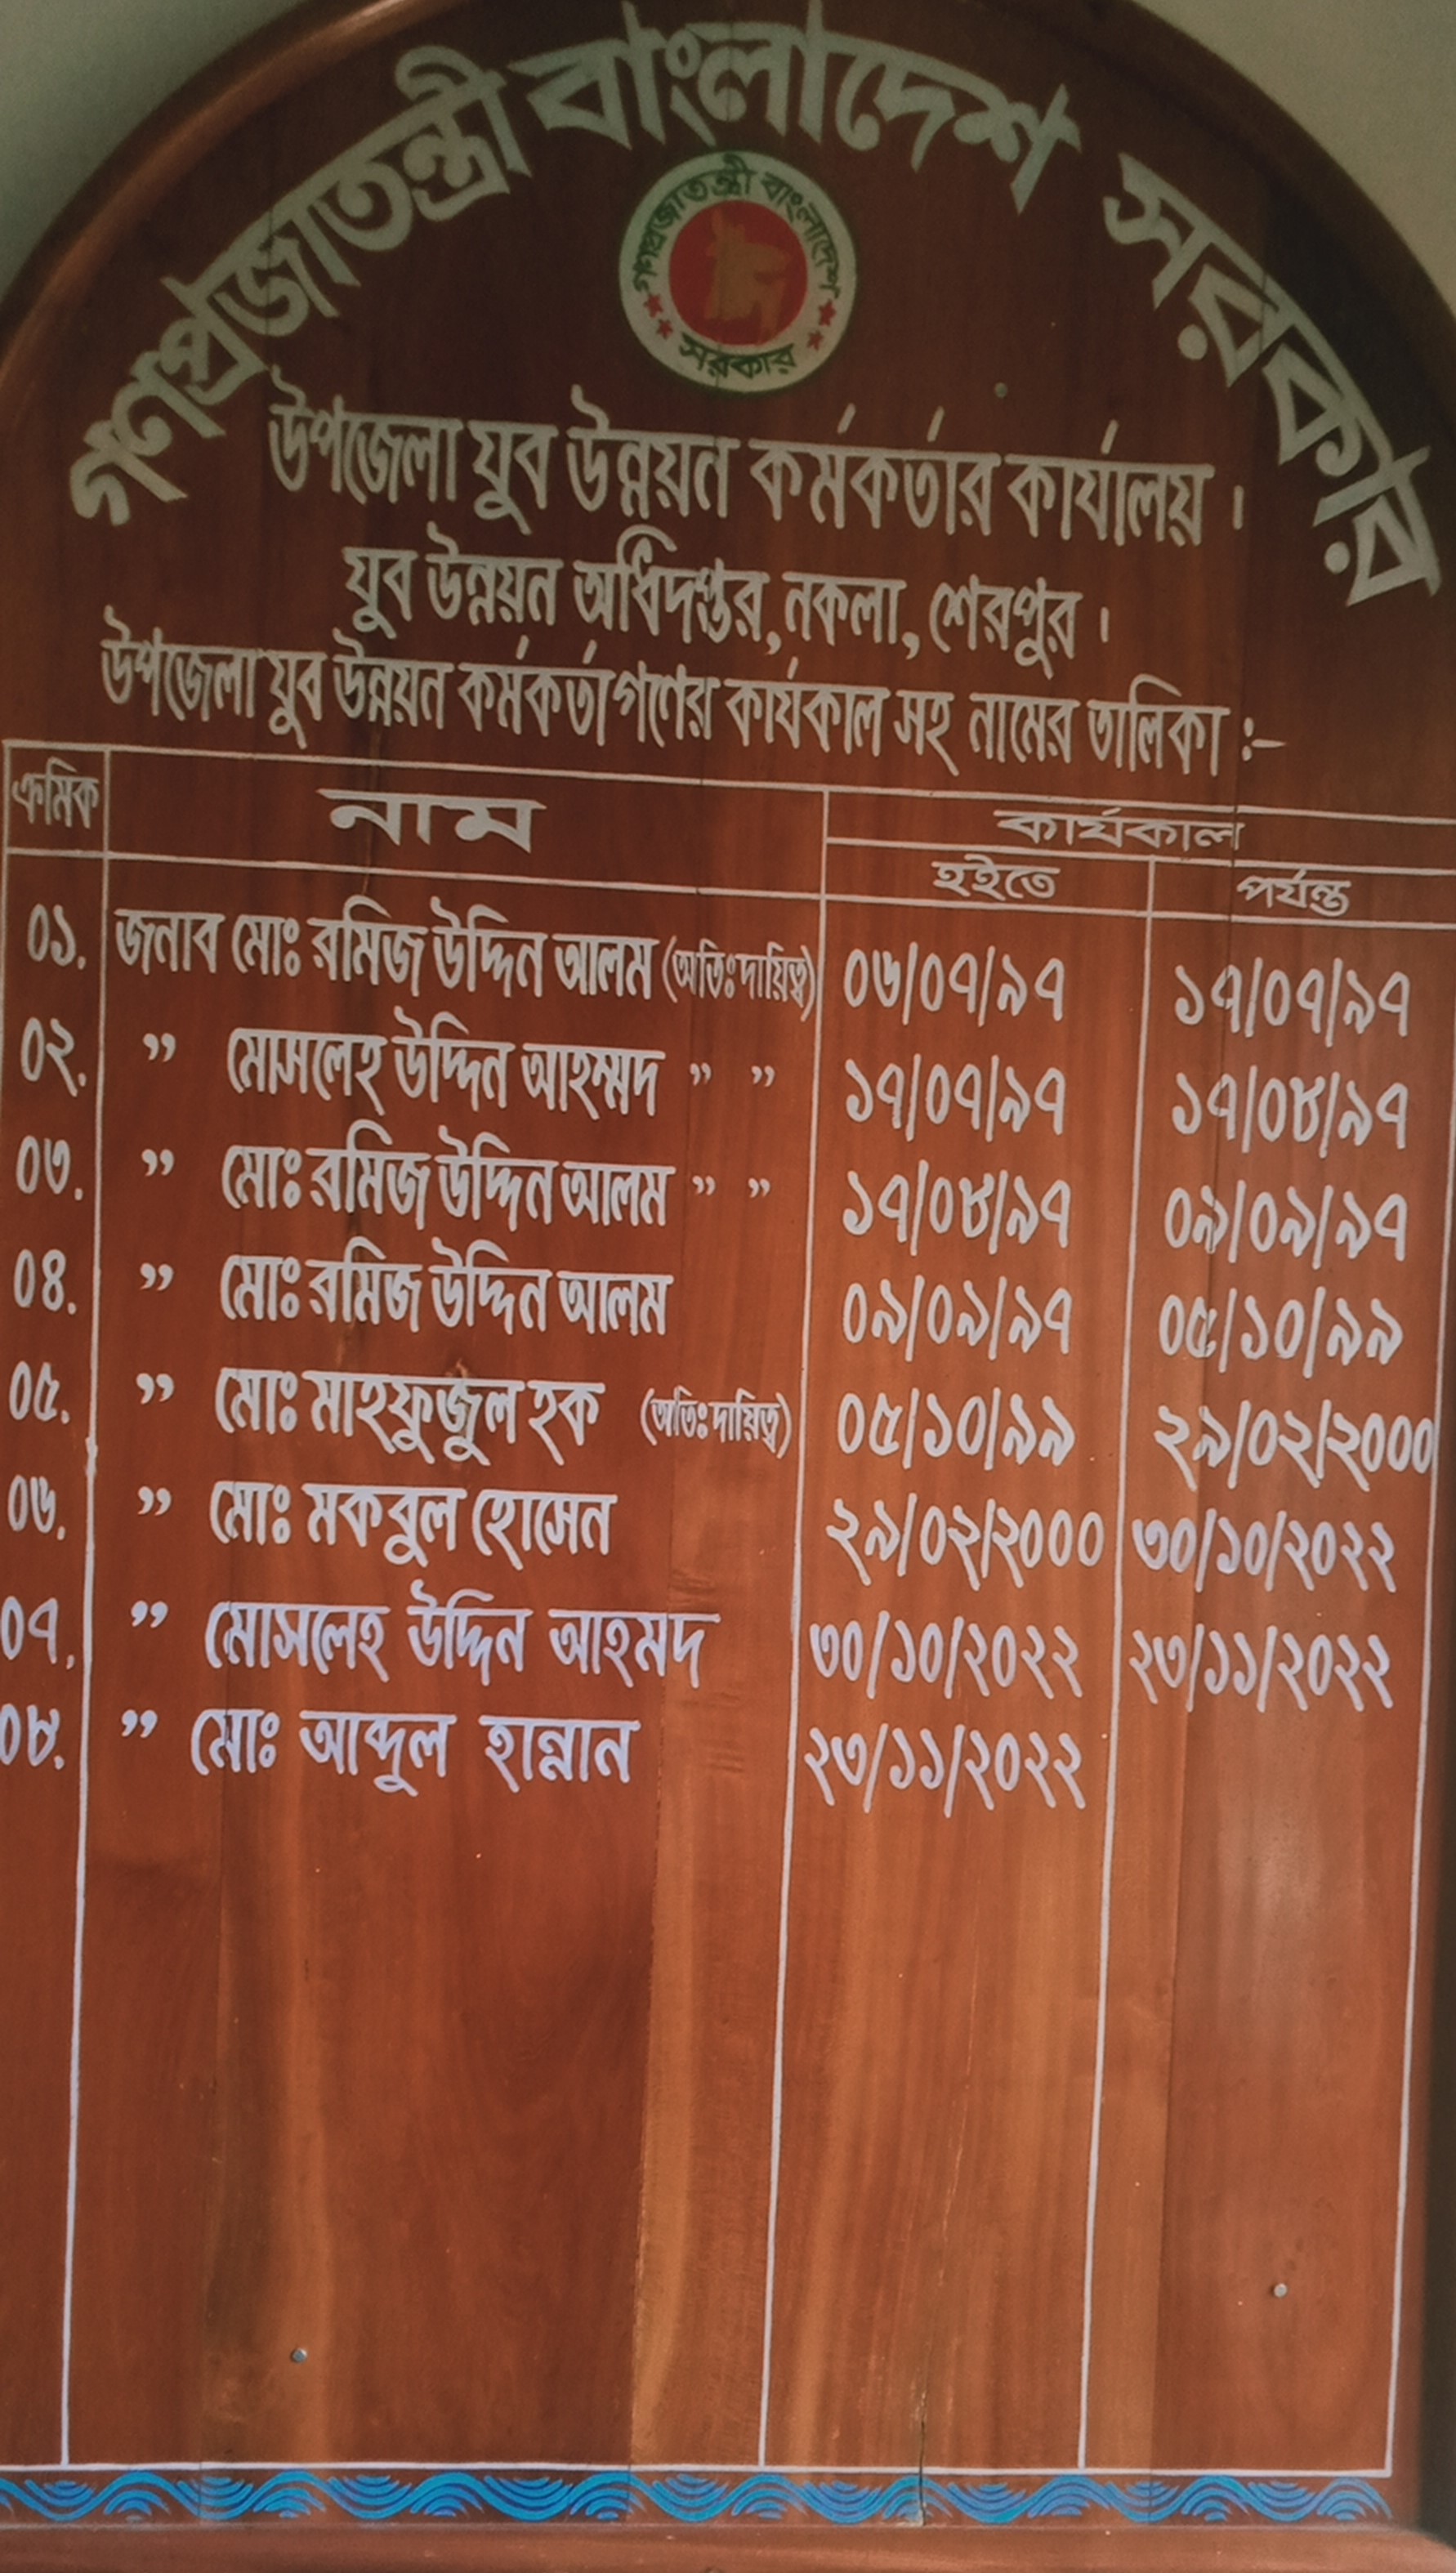 গণপ্রজাতন্ত্রী বাংলাদেশ সরকার
গণপ্রজাতন্ত্রী বাংলাদেশ
সরকার
উপজেলা যুব উন্নয়ন কর্মকর্তার কার্যালয় ।
যুব উন্নয়ন অধিদপ্তর, নকলা, শেরপুর ।
উপজেলা যুব উন্নয়ন কর্মকর্তাগণের কার্যকাল সহ নামের তালিকা :-
ক্রমিক নাম কার্যকাল
হইতে পর্যন্ত
০১. জনাব মোঃ রমিজ উদ্দিন আলম (অতিঃ দায়িত্ব) ০৬/০৭/৯৭ ১৭/০৭/৯৭
০২. ” মোসলেহ উদ্দিন আহম্মদ ” ” ১৭/০৭/৯৭ ১৭/০৮/৯৭
০৩. ” মোঃ রমিজ উদ্দিন আলম ” ” ১৭/০৮/৯৭ ০৯/০৯/৯৭
০৪. ” মোঃ রমিজ উদ্দিন আলম ০৯/০৯/৯৭ ০৫/১০/৯৯
০৫. ” মোঃ মাহফুজুল হক (অতিঃ দায়িত্ব) ০৫/১০/৯৯ ২৯/০২/২০০০
০৬. ” মোঃ মকবুল হোসেন ২৯/০২/২০০০ ৩০/১০/২০২২
০৭. ” মোসলেহ উদ্দিন আহমদ ৩০/১০/২০২২ ২৩/১১/২০২২
০৮. ” মোঃ আব্দুল হান্নান ২৩/১১/২০২২